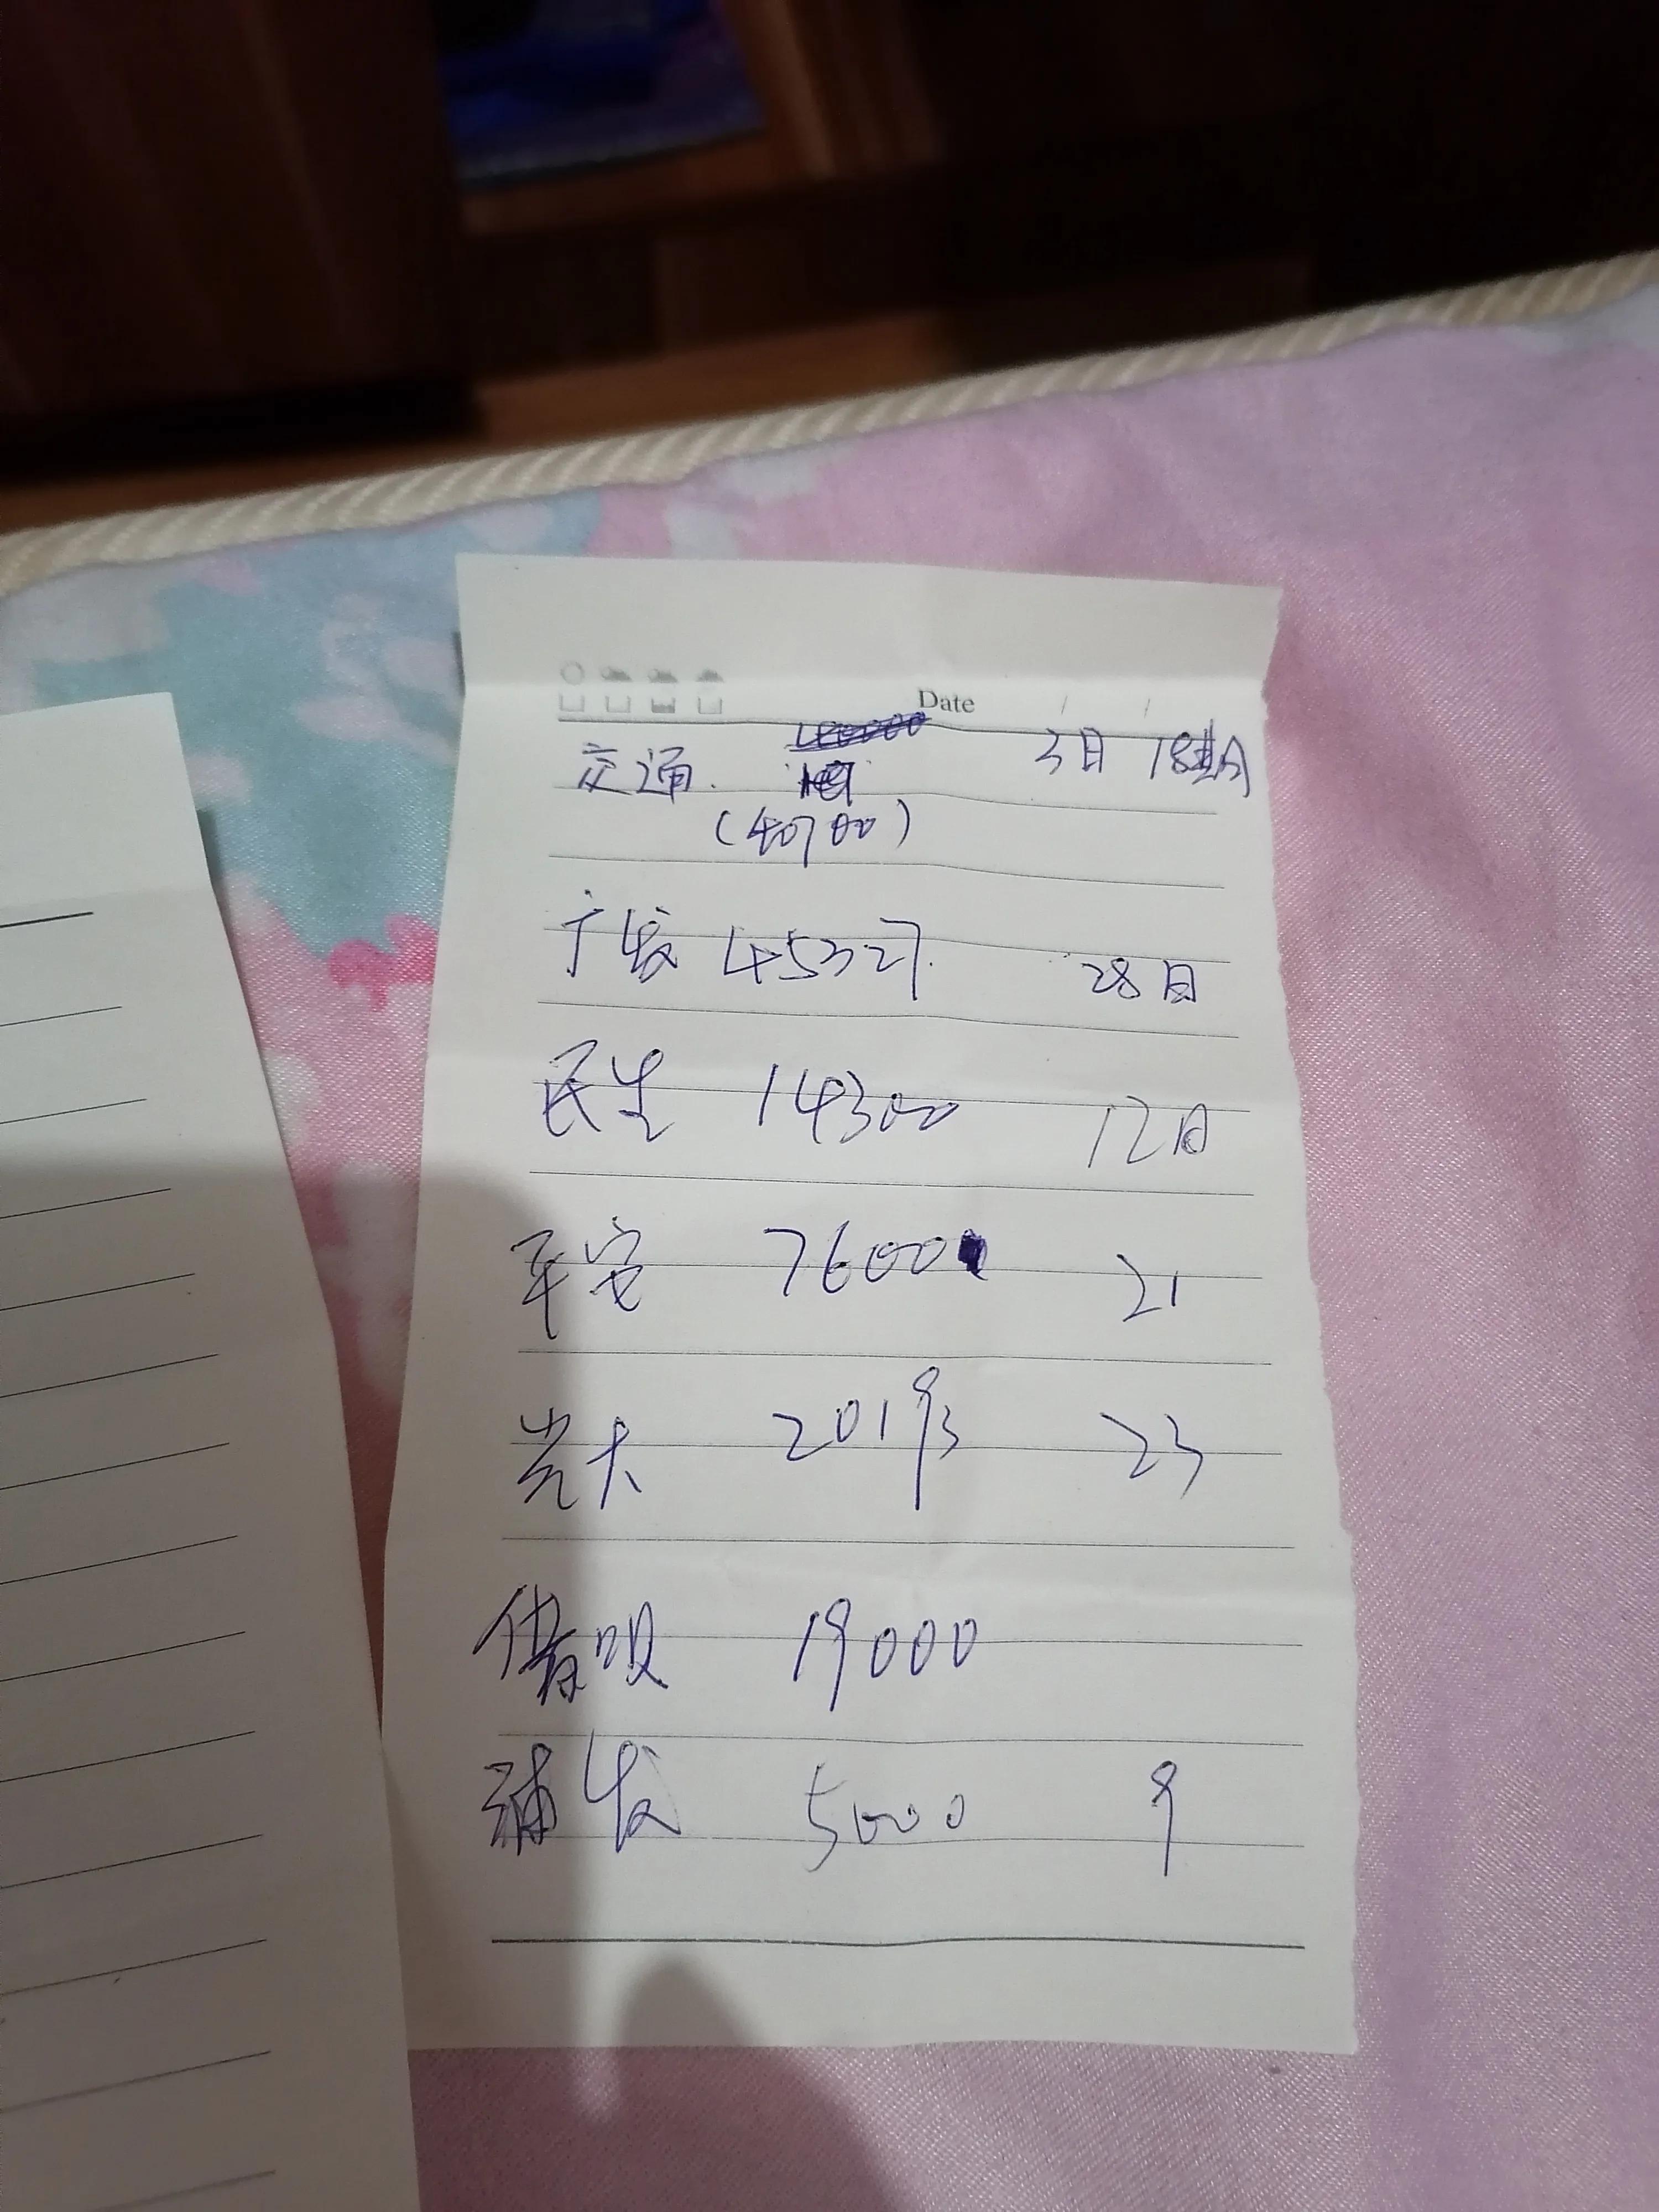 Date / /
交通. 3日 18日
(40700)
广发 45327. 28日
民生 14300 12日
平安 7600 21
光大 20193 23
借呗 19000
浦发 5000 9